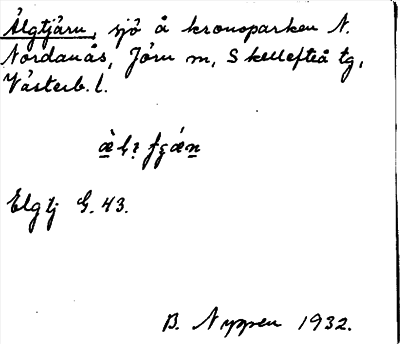 Älgtjärn, sjö å kronoparken N.
Nordanås, Jörn m, Skellefteå tg,
Västerb. l.
Elgtj G. 43.
B. Nyppen 1932.